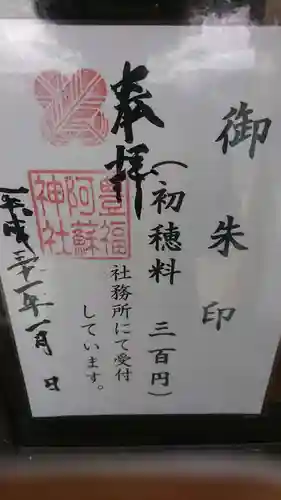 御朱印
(初穂料 三百円)
社務所にて受付
しています。
奉拝
豊福
阿蘇
神社
平成三十一年一月 日